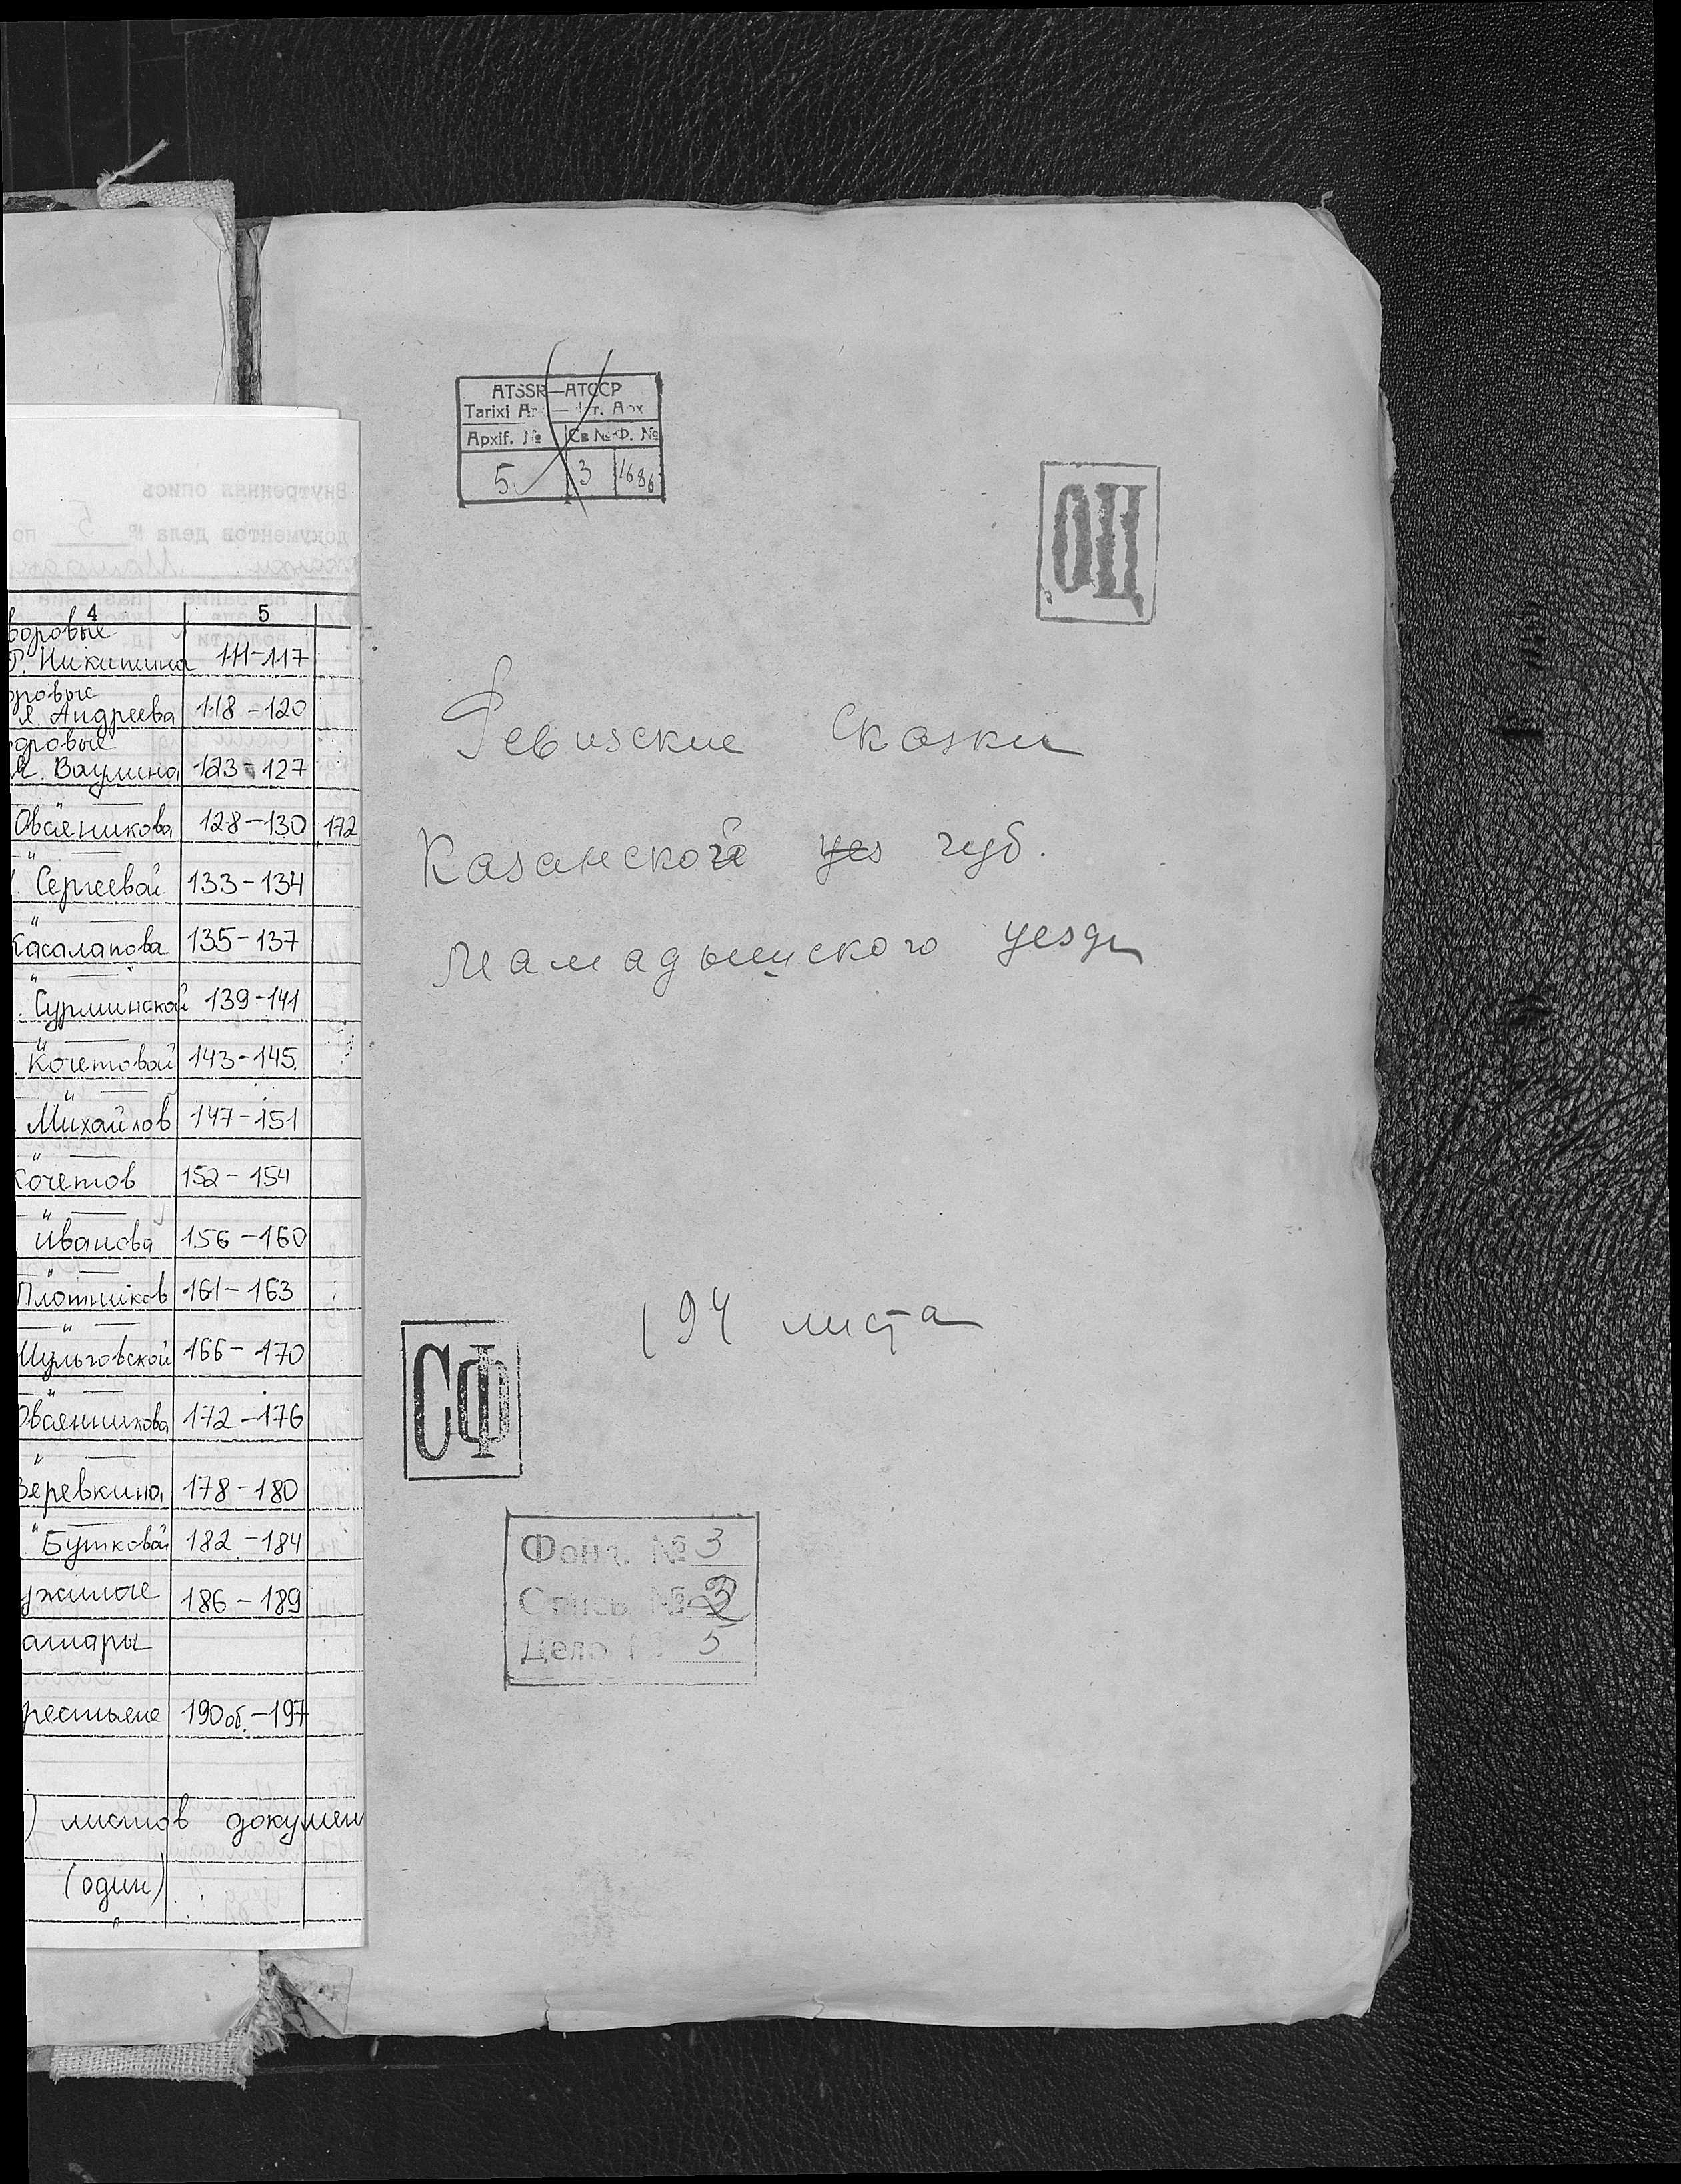 4 5
Г. Никитина 111-117
Я. Андреева 118-120
Ваулина 123-127
Овсяникова 128-130 172
Сергеевой 133-134
Касалапова 135-137
Сурминской 139-141
Кочетовой 143-145
Михайлов 147-151
Кочетов 152-154
Иванова 156-160
Плотников 161-163
166-170
Овсянникова 172-176
Веревкина 178-180
Бутковой 182-184
186-189
190об.-197
листов докумен
(один)
ATSSR—АТССР
Tarixi Ar — Ист. Арх
Арxif. № Св № Ф. №
5 3 1686
ОЦ
Ревизские Сказки
Казанской уез губ.
Мамадышского уезда
194 листа
СФ
Фонд. № 3
Опись № 2
Дело № 5